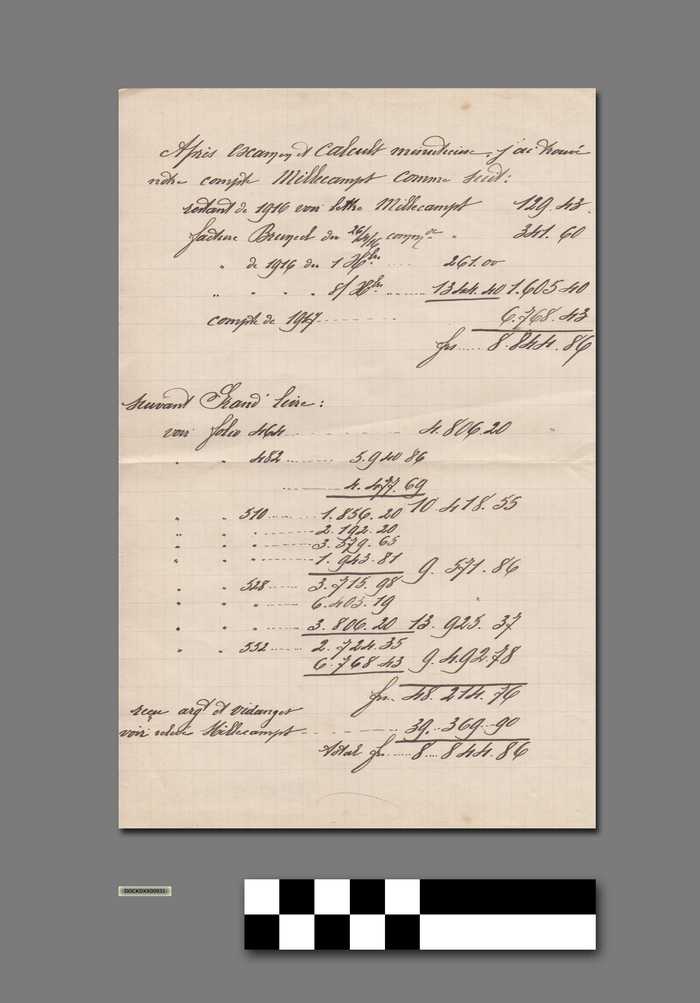 Après examen et calcult minutieuse, j'ai trouvé
notre compte Millecampt comme suit:
restant de 1916 voir lettre Millecampt 129.43.
facture Bruneel du 26/12/16 " 341.60
" de 1916 du 1 .... 261.00
" " " " 8/ ........ 1344.40 1.605 40
compte de 1917 ........ 6.768.43
frs..... 8.844.86
suivant Grand livre:
voir folio 464 ........ 4.806.20
" " 482 ........ 5.940 86
........ 4.477.69 10 418.55
" " 510 ........ 1.856.20
" " " ........ 2.192.20
" " " ........ 3.579.65
" " " ........ 1.943.81 9.571.86
" " 528 ........ 3.715.98
" " " ........ 6.403.19
" " " ........ 3.806.20 13.925.37
" " 532 ........ 2.724.35
6.768 43 9.492.78
frs. 48.214.76
reçu argt et vidanget
voir relevé Millecampt ........ 39.369.90
total frs. ..... 8.844.86
DOCKOXX00931